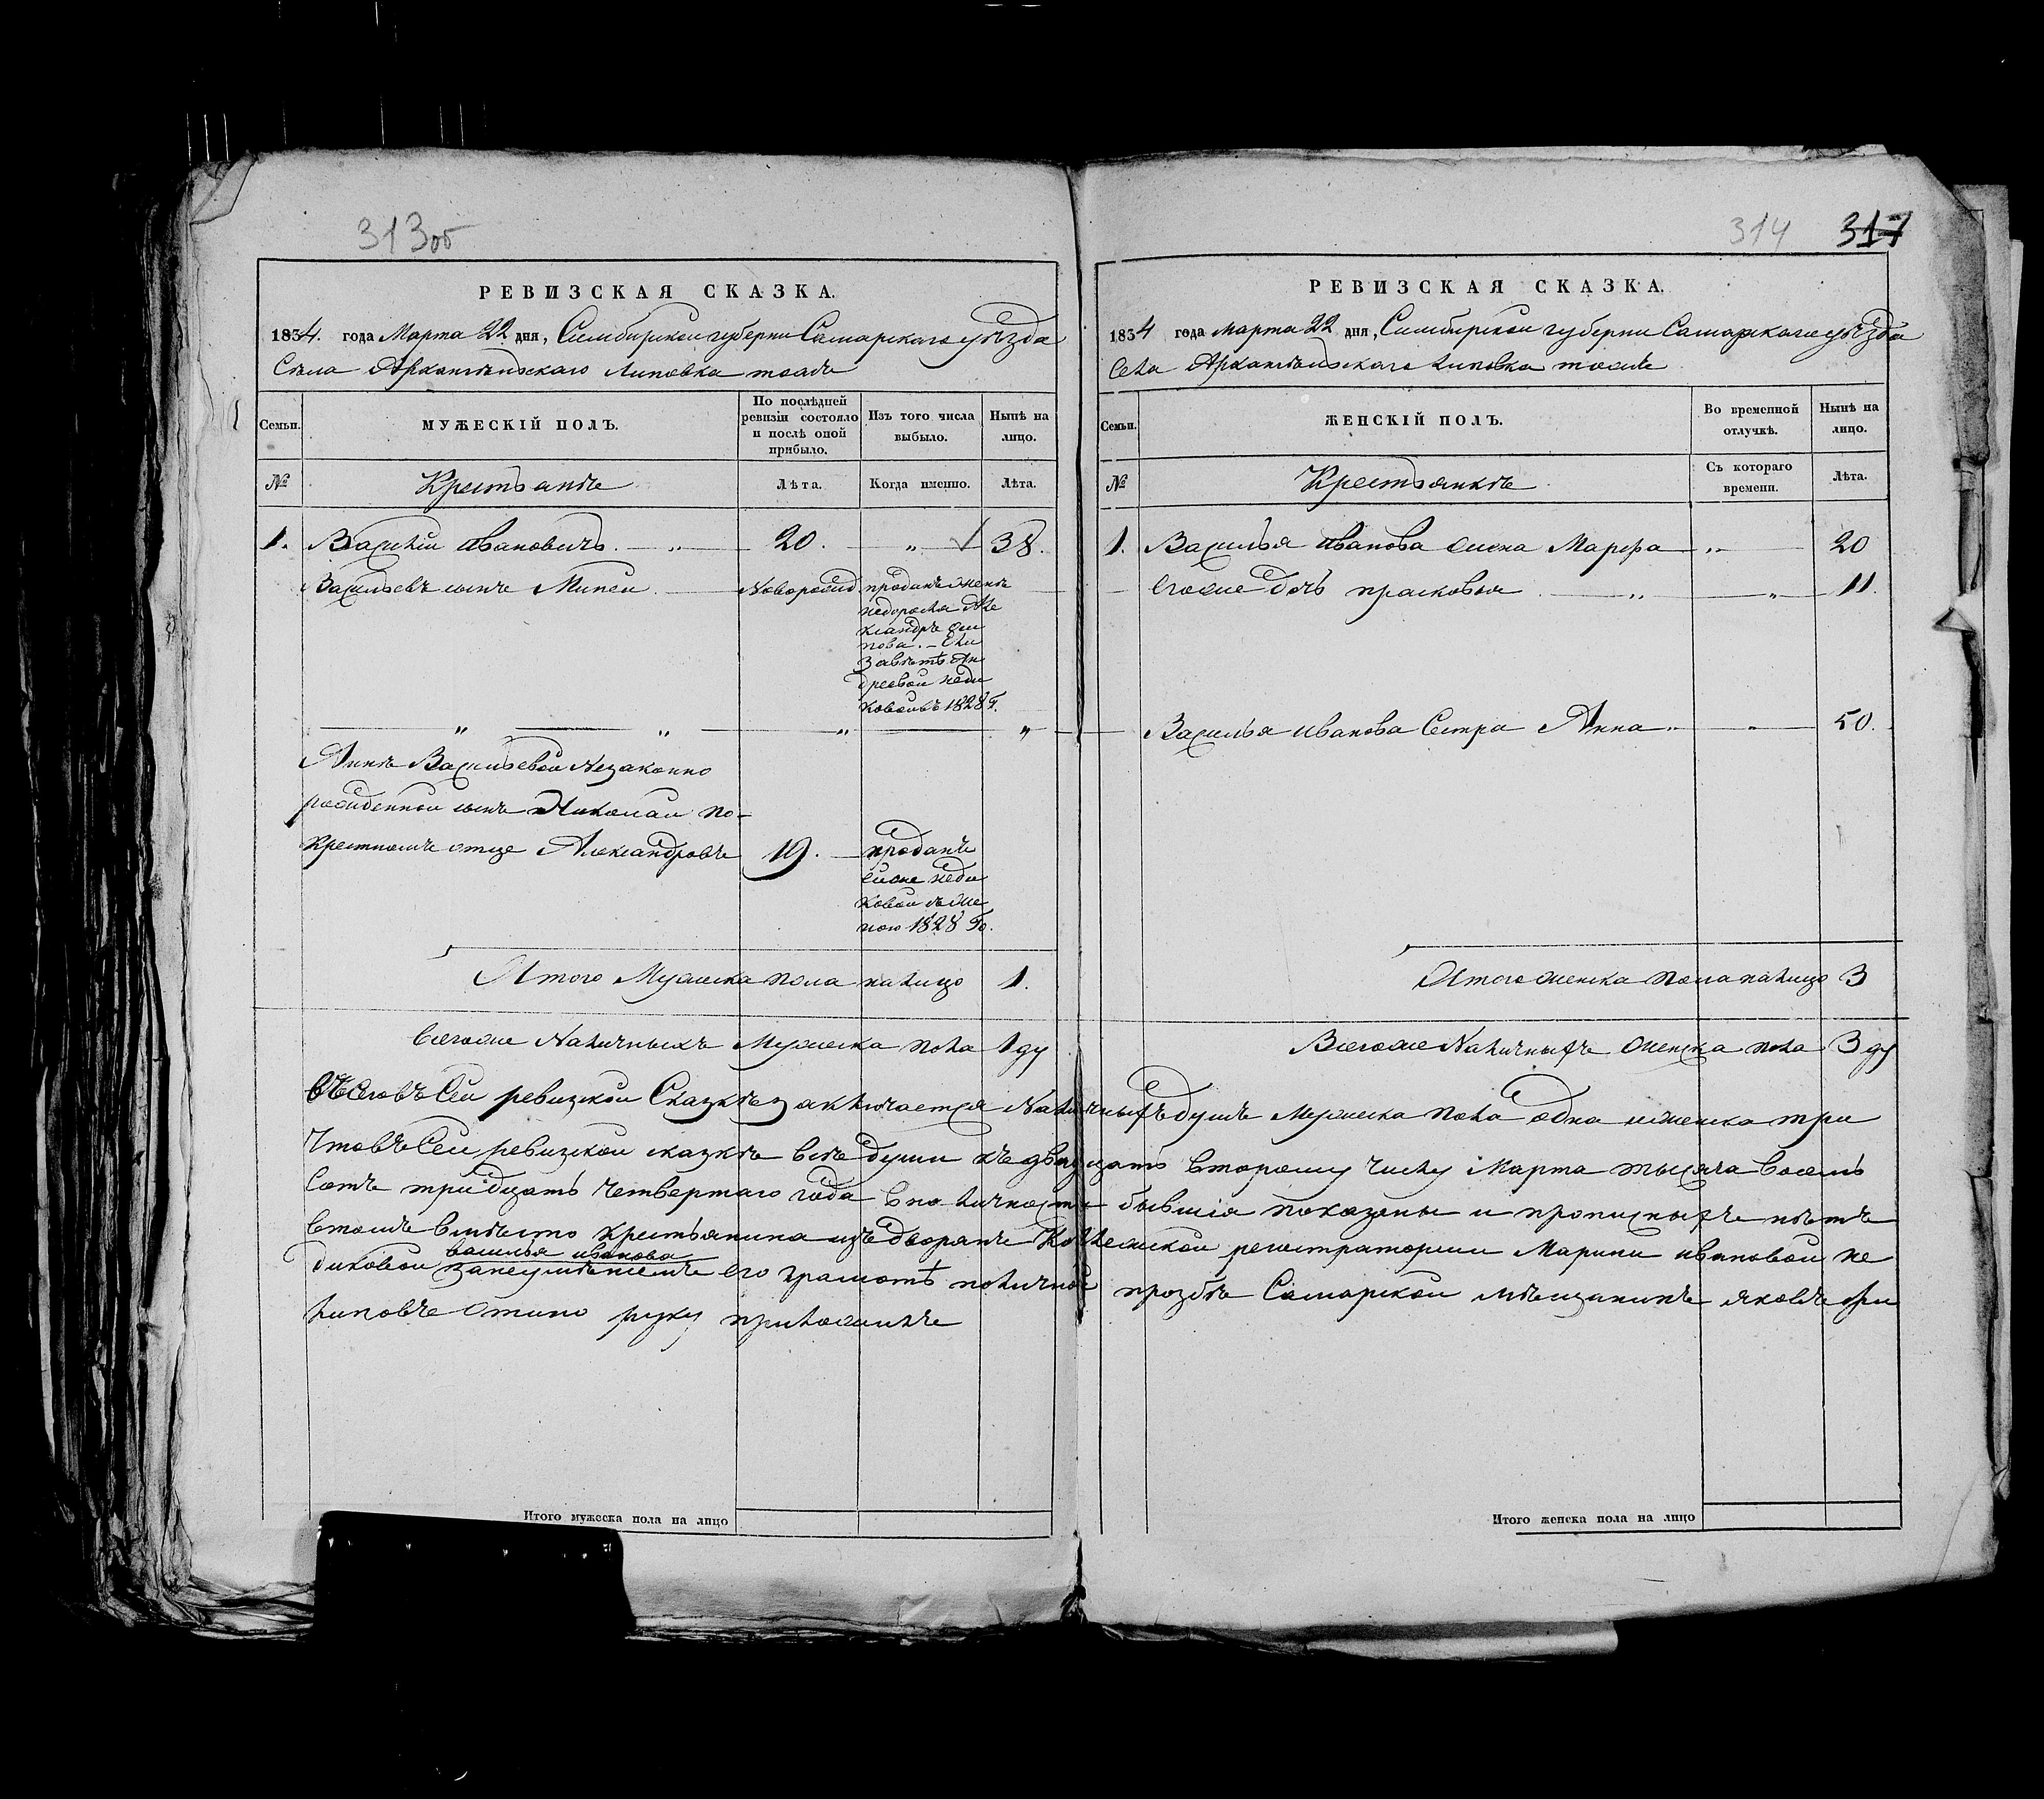 313об
РЕВИЗСКАЯ СКАЗКА.
1834. года Марта 22 дня, Симбирской губерни Самарскаго уѣзда
Села Архангельскаго Липовка тожъ
Семьи.
МУЖЕСКІЙ ПОЛЪ.
По послѣдней
ревизіи состояло
и послѣ оной
прибыло.
Изъ того числа
выбыло.
Нынѣ на
лицо.
№
Крестьяне
Лѣта.
Когда именно.
Лѣта.
1. Василій Ивановичъ. 20. „ 38.
Васильевъ сынъ Миней Новорожд проданъ жене
недоросля Але
ксандре Оси
пова. Ели
завете Ан
дреевой неди
ковой въ 1828 г.
„ „ „ „
Анне Васильевой Незаконно
рожденной сынъ Николай по
крестномъ отце Александровъ 19. проданъ
ей же неди
ковой съ же
ною 1828 го.
Итого Мужеска пола налицо 1.
Всегоже Наличныхъ Мужеска пола 1 ду
314 317
РЕВИЗСКАЯ СКАЗКА.
1834 года Марта 22 дня, Симбирской губерни Самарскаго уѣзда
Села Архангельскаго Липовка тожъ
Семьи.
ЖЕНСКІЙ ПОЛЪ.
Во временной
отлучкѣ.
Нынѣ на
лицо.
№
Крестьянкѣ
Съ котораго
времени.
Лѣта.
1. Василья Иванова жена Марфа „ 20
Егоже дочь прасковья „ „ 11.
Василья иванова Сестра Анна „ „ 50.
Итого женска пола налицо 3
Всегоже Наличныхъ женска пола 3 ду
Всего въ Сей ревизской Сказкѣ заключается Наличныхъ душъ Мужеска пола одна и женска три
Что въ Сей ревизской сказкѣ все души къ двадцать второму числу Марта тысяча восемь
сотъ тридцать четвертаго года в наличности бывшія показаны и прописныхъ нѣтъ
в томъ вмѣсто крестьянина изъ дворянъ Колежской регистраторши Марини ивановой не
василья иванова
диковой за неумѣніемъ его грамотѣ по личной прозбѣ Самарской мѣщанинъ яковъ фи
липовъ руку приложилъ
Итого мужеска пола на лицо
Итого женска пола на лицо